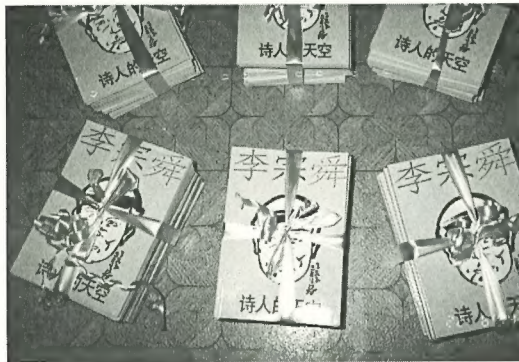 诗人的天空
诗人的天空
诗人的天空
李宗舜
诗 天空
李宗舜
诗人的天空
李宗舜
诗人 天空